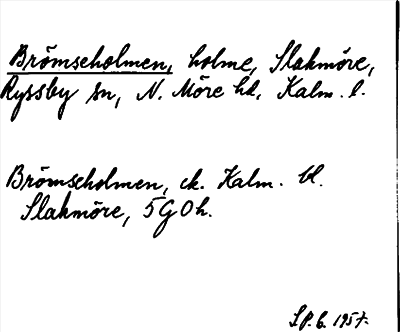 Brömseholmen, holme, Slakmöre,
Ryssby sn, N. Möre hd, Kalm. l.
Brömseholmen, ek. Kalm. bl.
Slakmöre, 5 G 0 h.
S.P.G. 1957.